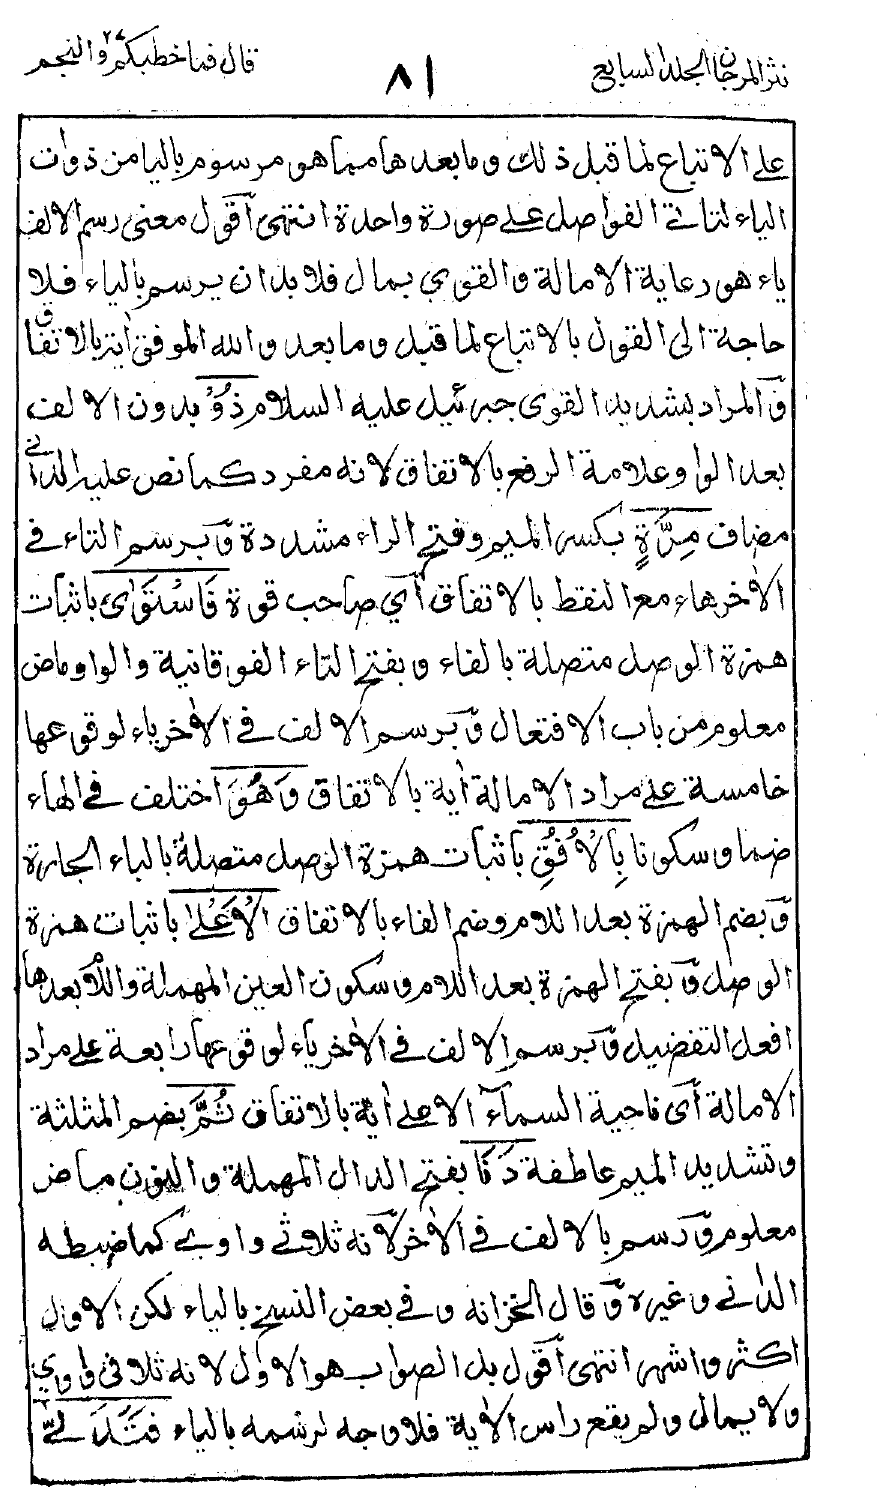 نثر المرجان الجلد السابع
٨١
قال فما خطبكم ٢٧ والنجم
على الاتباع لما قبل ذلك وما بعدها مما هو مرسوم بالياء من ذوات
الياء لتأتي الفواصل على صورة واحدة انتهى أقول معنى رسم الالف
ياء هو رعاية الامالة والقوي يمال فلا بد ان يرسم بالياء فلا
حاجة الى القول بالاتباع لما قبل وما بعد والله الموفق اية بالاتفاق
والمراد بشديد القوى جبرئيل عليه السلام ذُوْ بدون الالف
بعد الواو علامة الرفع بالاتفاق لانه مفرد كما نص عليه الداني
مضاف مِرَّةٍ بكسر الميم وفتح الراء مشددة وبرسم التاء في
الأخر هاء مع النقط بالاتفاق أي صاحب قوة فَاسْتَوٰى باثبات
همزة الوصل متصلة بالفاء وبفتح التاء الفوقانية والواو ماض
معلوم من باب الافتعال وبرسم الالف في الأخر ياء لوقوعها
خامسة على مراد الامالة أية بالاتفاق وَهُوَ اختلف في الهاء
ضما وسكونا بِالْاُفُقِ باثبات همزة الوصل متصلة بالباء الجارة
وبضم الهمزة بعد اللام وضم الفاء بالاتفاق الْاَعْلٰى باثبات همزة
الوصل وبفتح الهمزة بعد اللام وسكون العين المهملة واللام بعدها
افعل التفضيل وبرسم الالف في الأخر ياء لوقوعها رابعة على مراد
الامالة أى ناحية السماء الاعلى أية بالاتفاق ثُمَّ بضم المثلثة
وتشديد الميم عاطفة دَنَا بفتح الدال المهملة والنون ماض
معلوم ورسم بالالف في الأخر لانه ثلاثي واوي كما ضبطه
الداني وغيره وقال الخزانه وفي بعض النسخ بالياء لكن الاول
اكثر واشهر انتهى أقول بل الصواب هو الاول لانه ثلاثى واوي
ولا يمال ولم يقع راس الأية فلا وجه لرسمه بالياء فَتَدَلّٰى